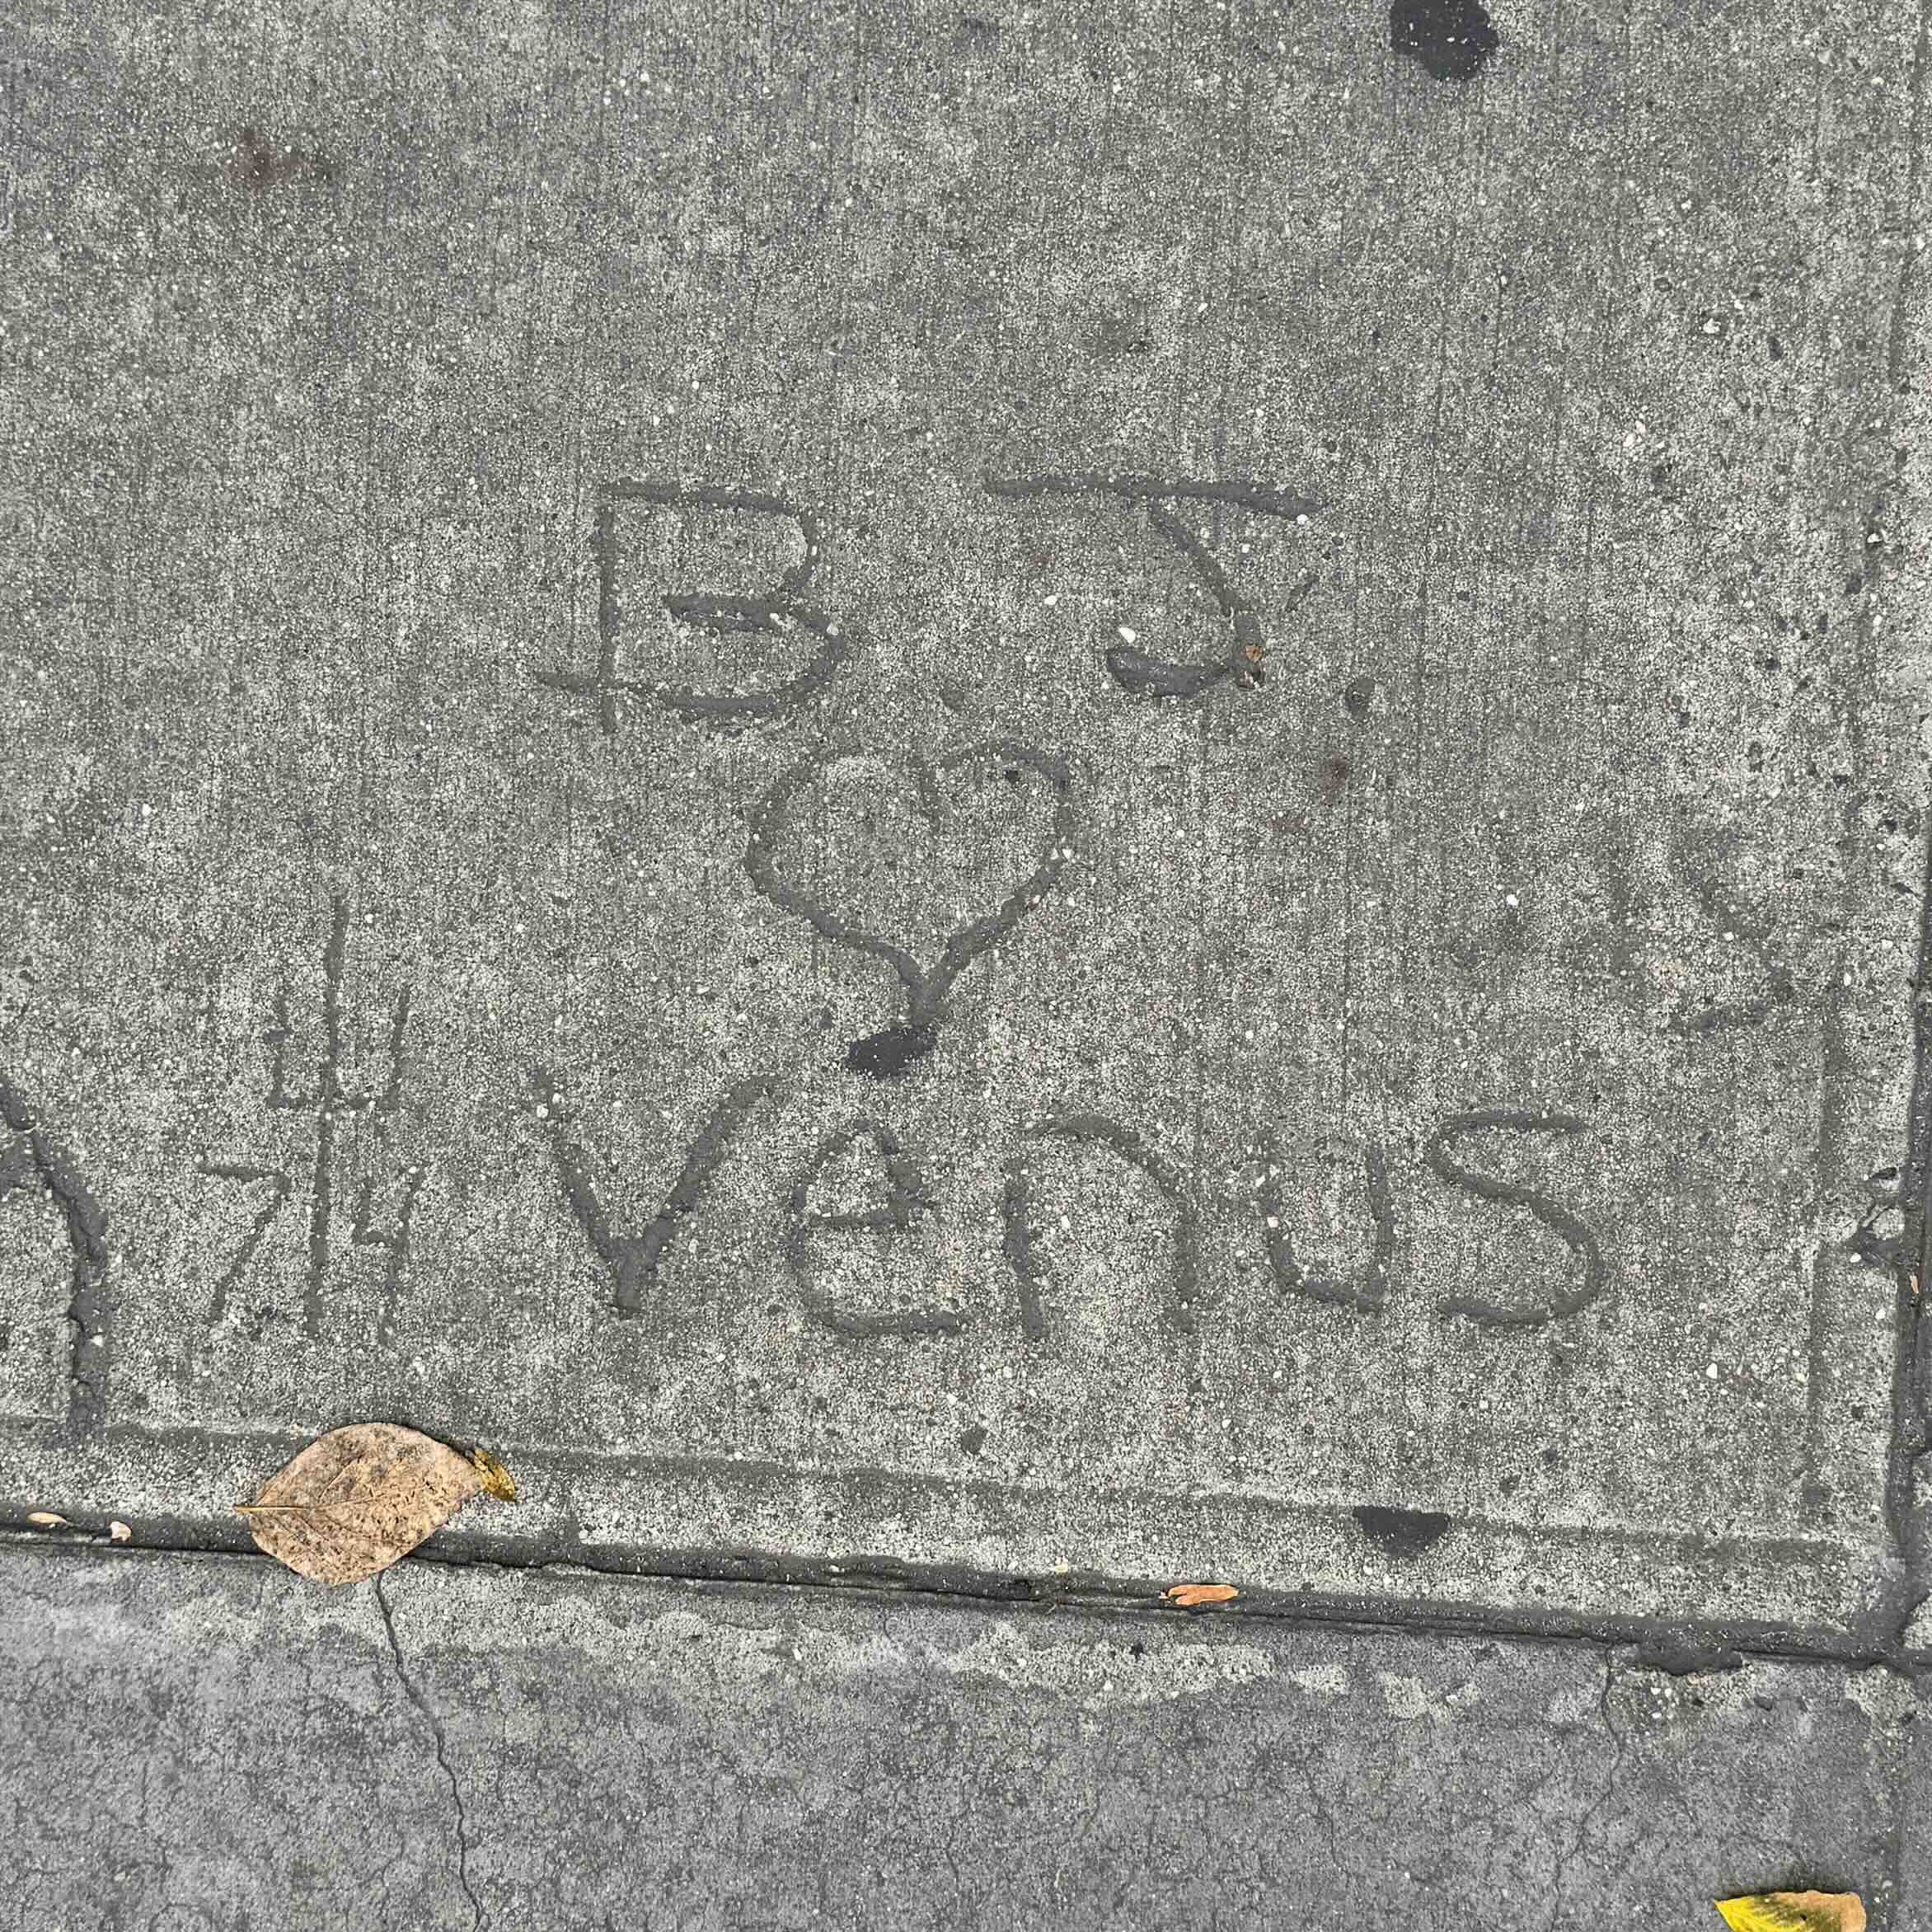 B J
♡
Venus
74